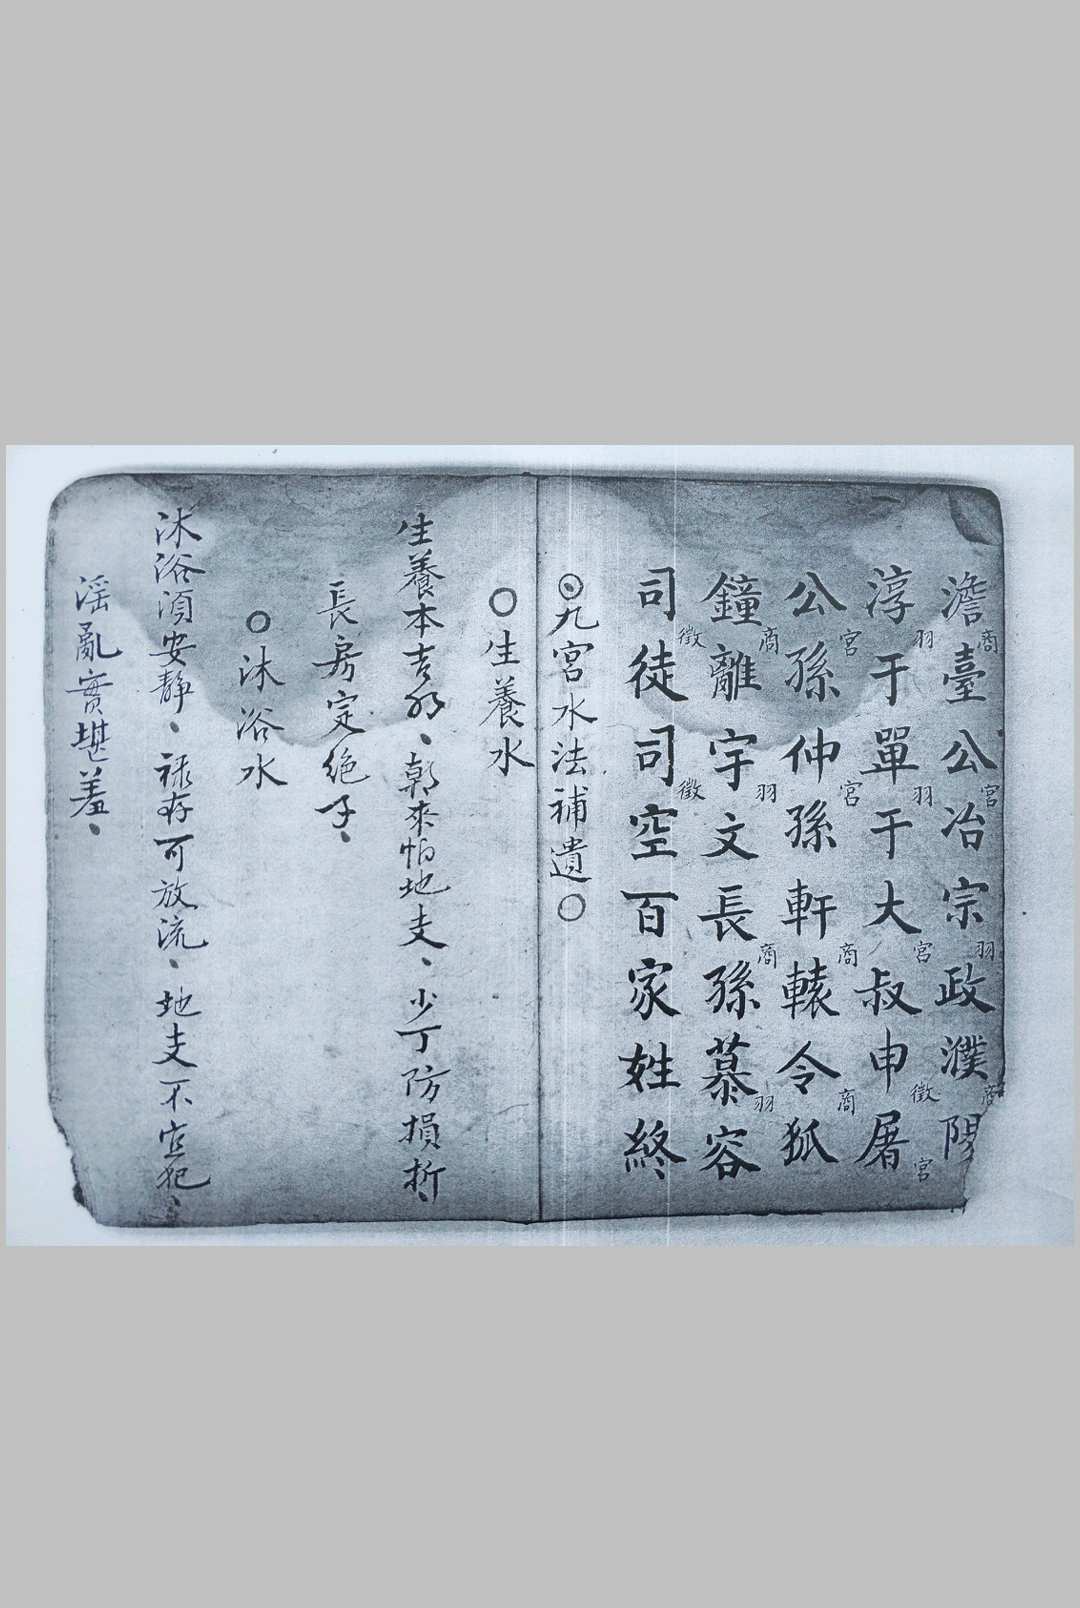 澹臺商公冶宮宗政羽濮陽商
淳于羽單于羽大叔宮申徵屠宮
公孫宮仲孫宮軒轅商令狐商
鐘離商宇文羽長孫商慕容羽
司徒徵司空徵百家姓終
◎九宮水法補遺○
○生養水
生養本吉、朝來怕地支、少丁防損折、
長房定絶子、
○沐浴水
沐浴須安靜、禄存可放流、地支不宜犯、
淫亂實堪羞、